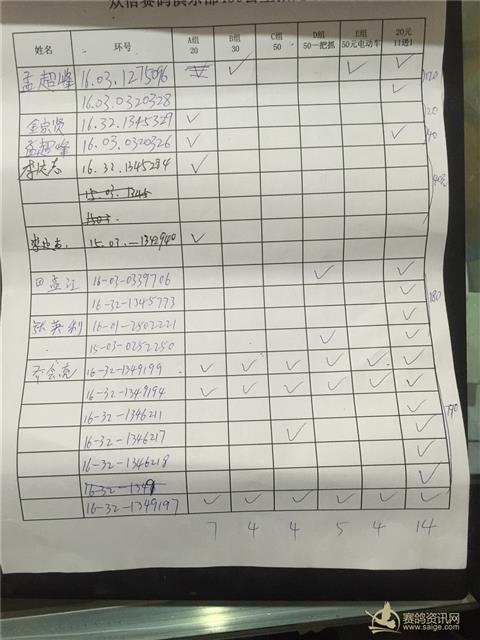 姓名 环号 A组 20 B组 30 C组 50 D组 50一把抓 E组 50元电动车 20元 11进1
孟超峰 16.03.1275096 ✓ ✓ ✓ ✓
16.03.0320328 ✓
金宗贤 16.32.1345329 ✓ 120
孟超峰 16.03.0320326 ✓ ✓ 40
16.32.1345284 ✓
15.03.1345
1503.
15.03.—1342940 ✓
田孟江 16-03-0339706 ✓ ✓
16-32-1345773 ✓ 180
张英利 16-01-2502221 ✓
15-03-0252250 ✓ ✓
16-32-1349199 ✓ ✓ ✓ ✓ ✓ ✓
16-32-1349194 ✓ ✓ ✓ ✓ ✓ ✓
16-32-1346211 ✓
16-32-1346217 ✓ ✓
16-32-1346218 ✓
16-32-1349 ✓
16-32-1349197 ✓ ✓ ✓ ✓ ✓ ✓
7 4 4 5 4 14
赛鸽资讯网
www.saige.com